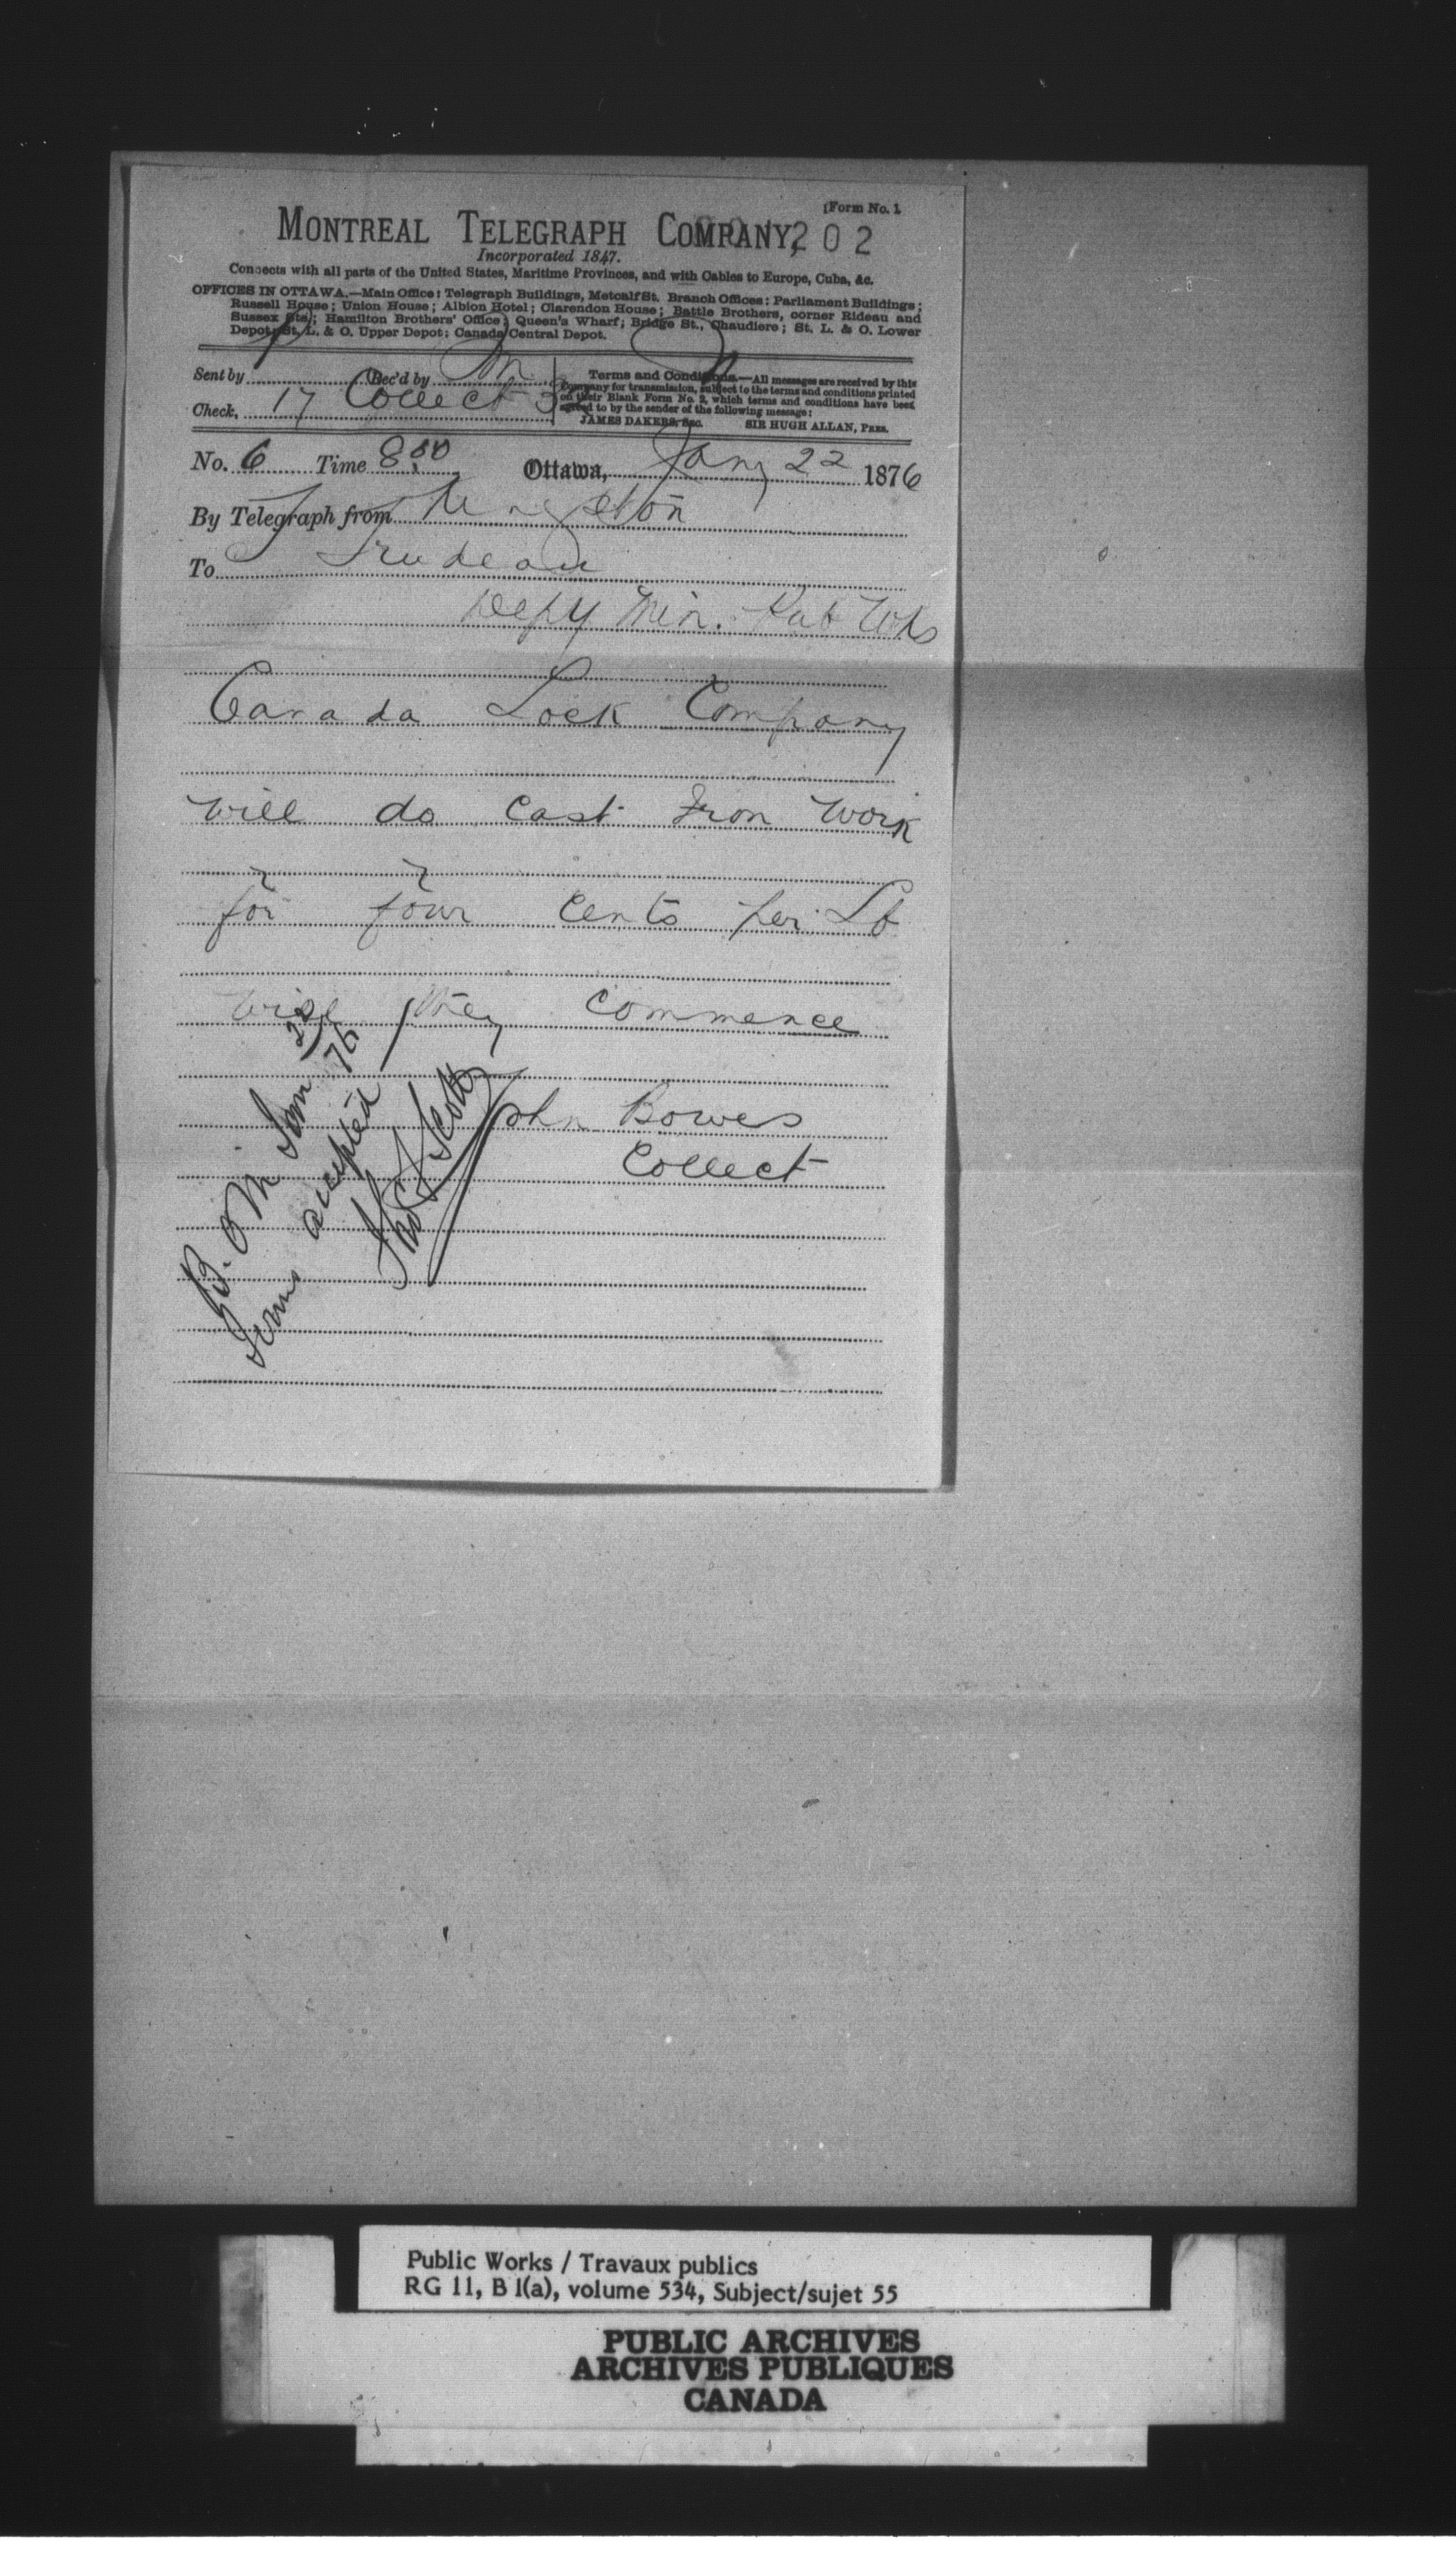 [Form No. 1.
MONTREAL TELEGRAPH COMPANY,
202
Incorporated 1847.
Connects with all parts of the United States, Maritime Provinces, and with Cables to Europe, Cuba, &c.
OFFICES IN OTTAWA.—Main Office: Telegraph Buildings, Metcalf St. Branch Offices: Parliament Buildings;
Russell House; Union House; Albion Hotel; Clarendon House; Battle Brothers, corner Rideau and
Sussex Sts; Hamilton Brothers' Office; Queen's Wharf; Bridge St., Chaudiere; St. L. & O. Lower
Depot; St. L. & O. Upper Depot; Canada Central Depot.
Sent by Rec'd by
Check, 17 Collect
Terms and Conditions.—All messages are received by this
Company for transmission, subject to the terms and conditions printed
on their Blank Form No. 2, which terms and conditions have been
agreed to by the sender of the following message:
JAMES DAKERS, Sec. SIR HUGH ALLAN, Pres.
No. 6 Time 8.50 Ottawa, Jany 22 1876
By Telegraph from Kingston
To T Trudeau
Depy Min. Pub Wks
Canada Lock Company
will do cast Iron work
for four cents per Lb
will they commence
John Bowes
Collect
accepted
Thos S Scott
Public Works / Travaux publics
RG 11, B 1(a), volume 534, Subject/sujet 55
PUBLIC ARCHIVES
ARCHIVES PUBLIQUES
CANADA